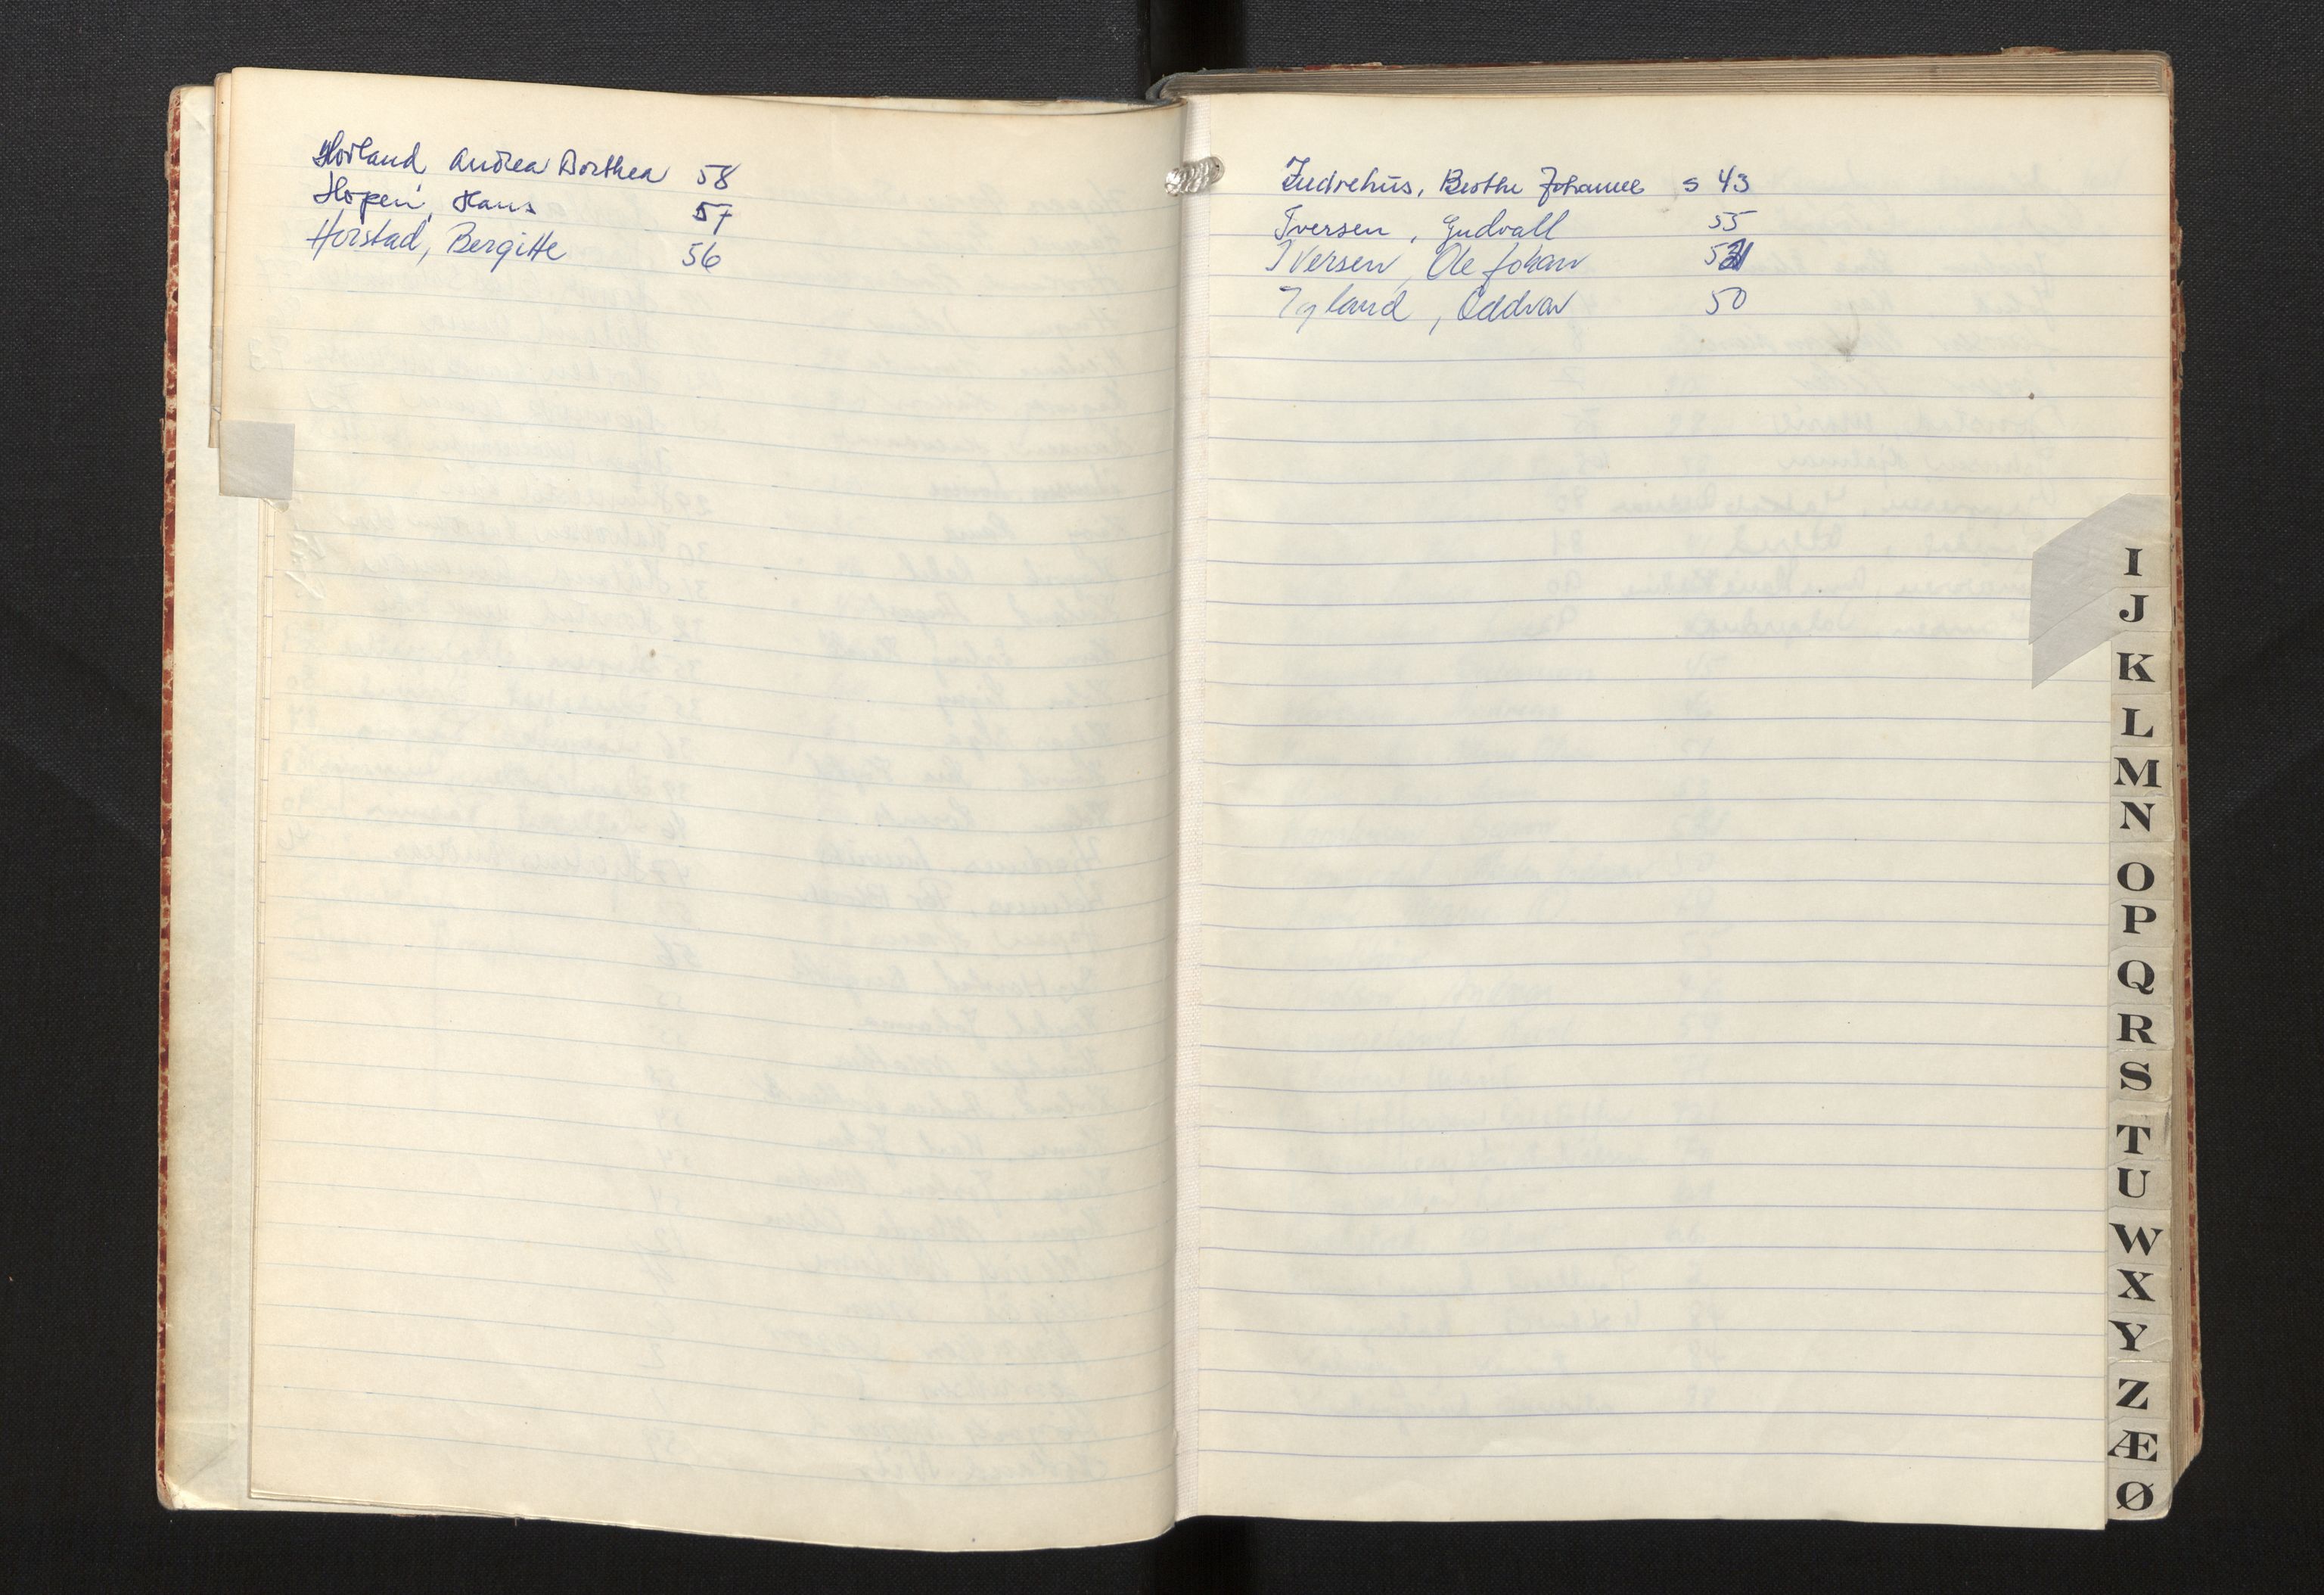 Hovland Andrea Dorthea 58
Hopen, Hans 57
Horstad, Bergitte 56
Indrehus, Berthe Johanne s 43
Iversen, Gudvall 55
Iversen, Ole Johan
Iyland, Oddvar 50
I
J
K
L
M
N
O
P
Q
R
S
T
U
W
X
Y
Z
Æ
Ø